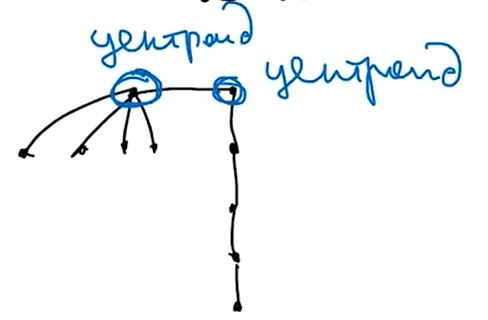 центроид
центроид